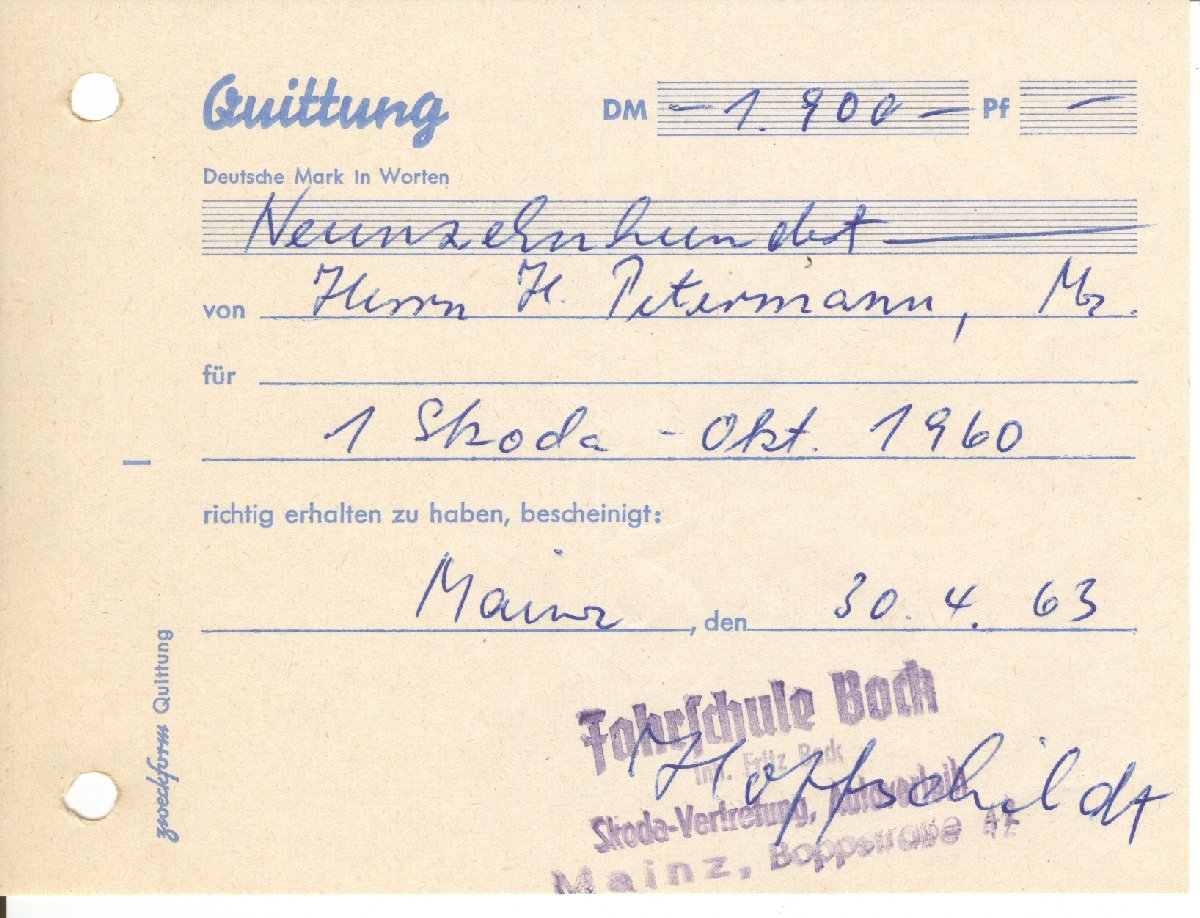 Quittung DM – 1.900 – Pf –
Deutsche Mark in Worten
Neunzehnhundert
von Herrn H. Petermann, Mz.
für
1 Skoda - Okt. 1960
richtig erhalten zu haben, bescheinigt:
Mainz, den 30.4.63
Fahrschule Bock
Inh. Fritz Bock
Hopfschildt
Skoda-Vertretung, Autoverleih
Mainz, Boppstraße
zweckform Quittung